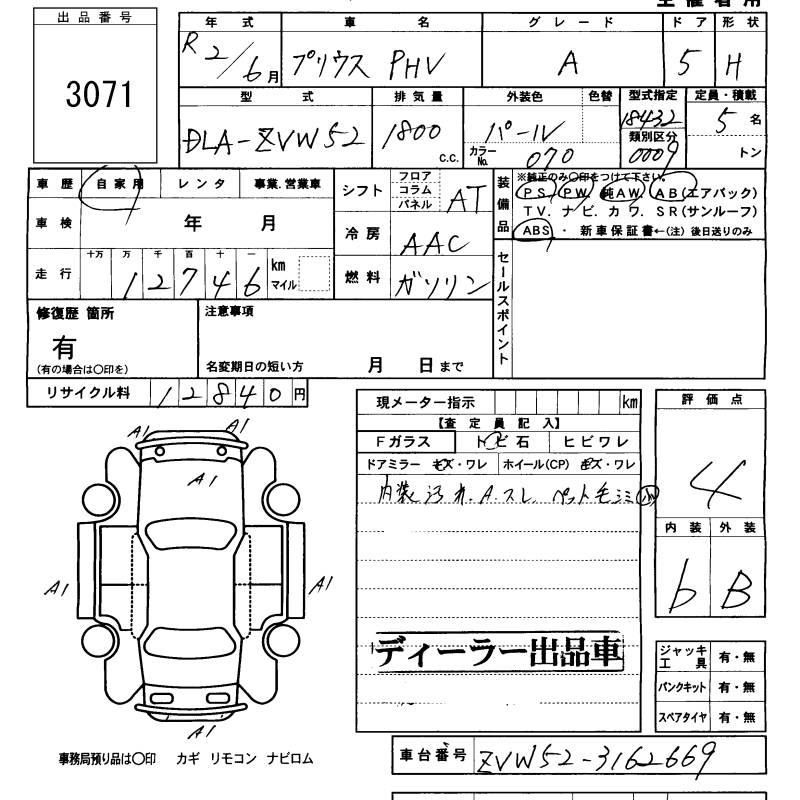 出品番号
3071
年式 車名 グレード ドア 形状
R2/6月 プリウス PHV A 5 H
型式 排気量 外装色 色替 型式指定 定員・積載
DLA-ZVW52 1800 c.c. パール 18432 5名
カラーNo. 070 類別区分 0009 トン
車歴 自家用 レンタ 事業.営業車
車検 年 月
走行 十万 万 千 百 十 一
12746 km マイル
シフト フロア コラム パネル AT
冷房 AAC
燃料 ガソリン
装備品 ※純正のみ〇印をつけて下さい。
PS PW 純AW AB(エアバック)
TV. ナビ. カワ. SR(サンルーフ)
ABS ・ 新車保証書←(注) 後日送りのみ
セールスポイント
修復歴 箇所
有
(有の場合は〇印を)
注意事項
名変期日の短い方 月 日まで
リサイクル料 12840円
現メーター指示 km
【査定員記入】
Fガラス トビ石 ヒビワレ
ドアミラー キズ・ワレ ホイール(CP) キズ・ワレ
内装汚れ.A.スレ. ペット毛シミ小
ディーラー出品車
評価点
4
内装 外装
b B
ジャッキ工具 有・無
パンクキット 有・無
スペアタイヤ 有・無
A1 A1
A1
A1 A1
A1
事務局預り品は〇印 カギ リモコン ナビロム
車台番号 ZVW52-3162669